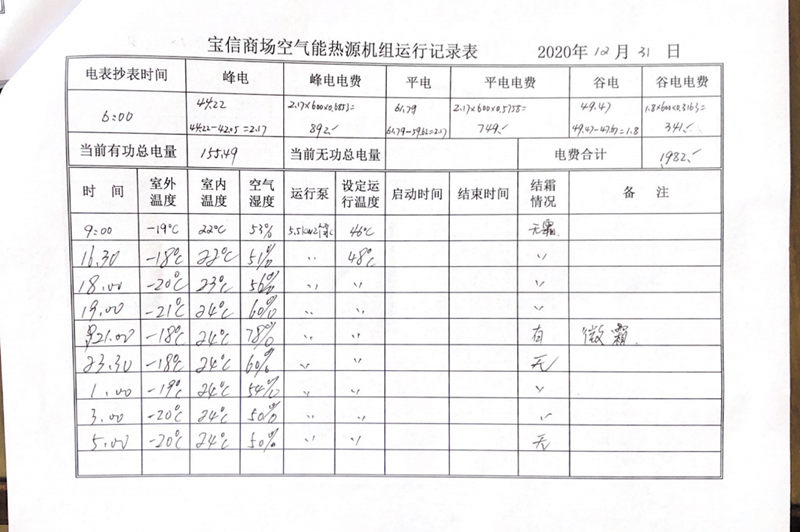 宝信商场空气能热源机组运行记录表 2020年12月31日
电表抄表时间 峰电 峰电电费 平电 平电电费 谷电 谷电电费
6:00 44.22 2.17×600×0.6853= 61.79 2.17×600×0.5758= 49.47 1.8×600×0.3163=
44.22-42.05=2.17 892. 61.79-59.62=2.17 749. 49.47-47.67=1.8 341.
当前有功总电量 155.49 当前无功总电量 电费合计 1982.
时间 室外温度 室内温度 空气湿度 运行泵 设定运行温度 启动时间 结束时间 结霜情况 备注
9:00 -19℃ 22℃ 53% 5.5kw2 46℃ 无霜
16.30 -18℃ 22℃ 51% 〃 48℃ 〃
18.00 -20℃ 23℃ 56% 〃 〃 〃
19.00 -21℃ 24℃ 60% 〃 〃 〃
21.00 -18℃ 24℃ 78% 〃 〃 有 微霜
23.30 -18℃ 24℃ 60% 〃 〃 无
1.00 -19℃ 24℃ 54% 〃 〃 〃
3.00 -20℃ 24℃ 50% 〃 〃 〃
5.00 -20℃ 24℃ 50% 〃 〃 无